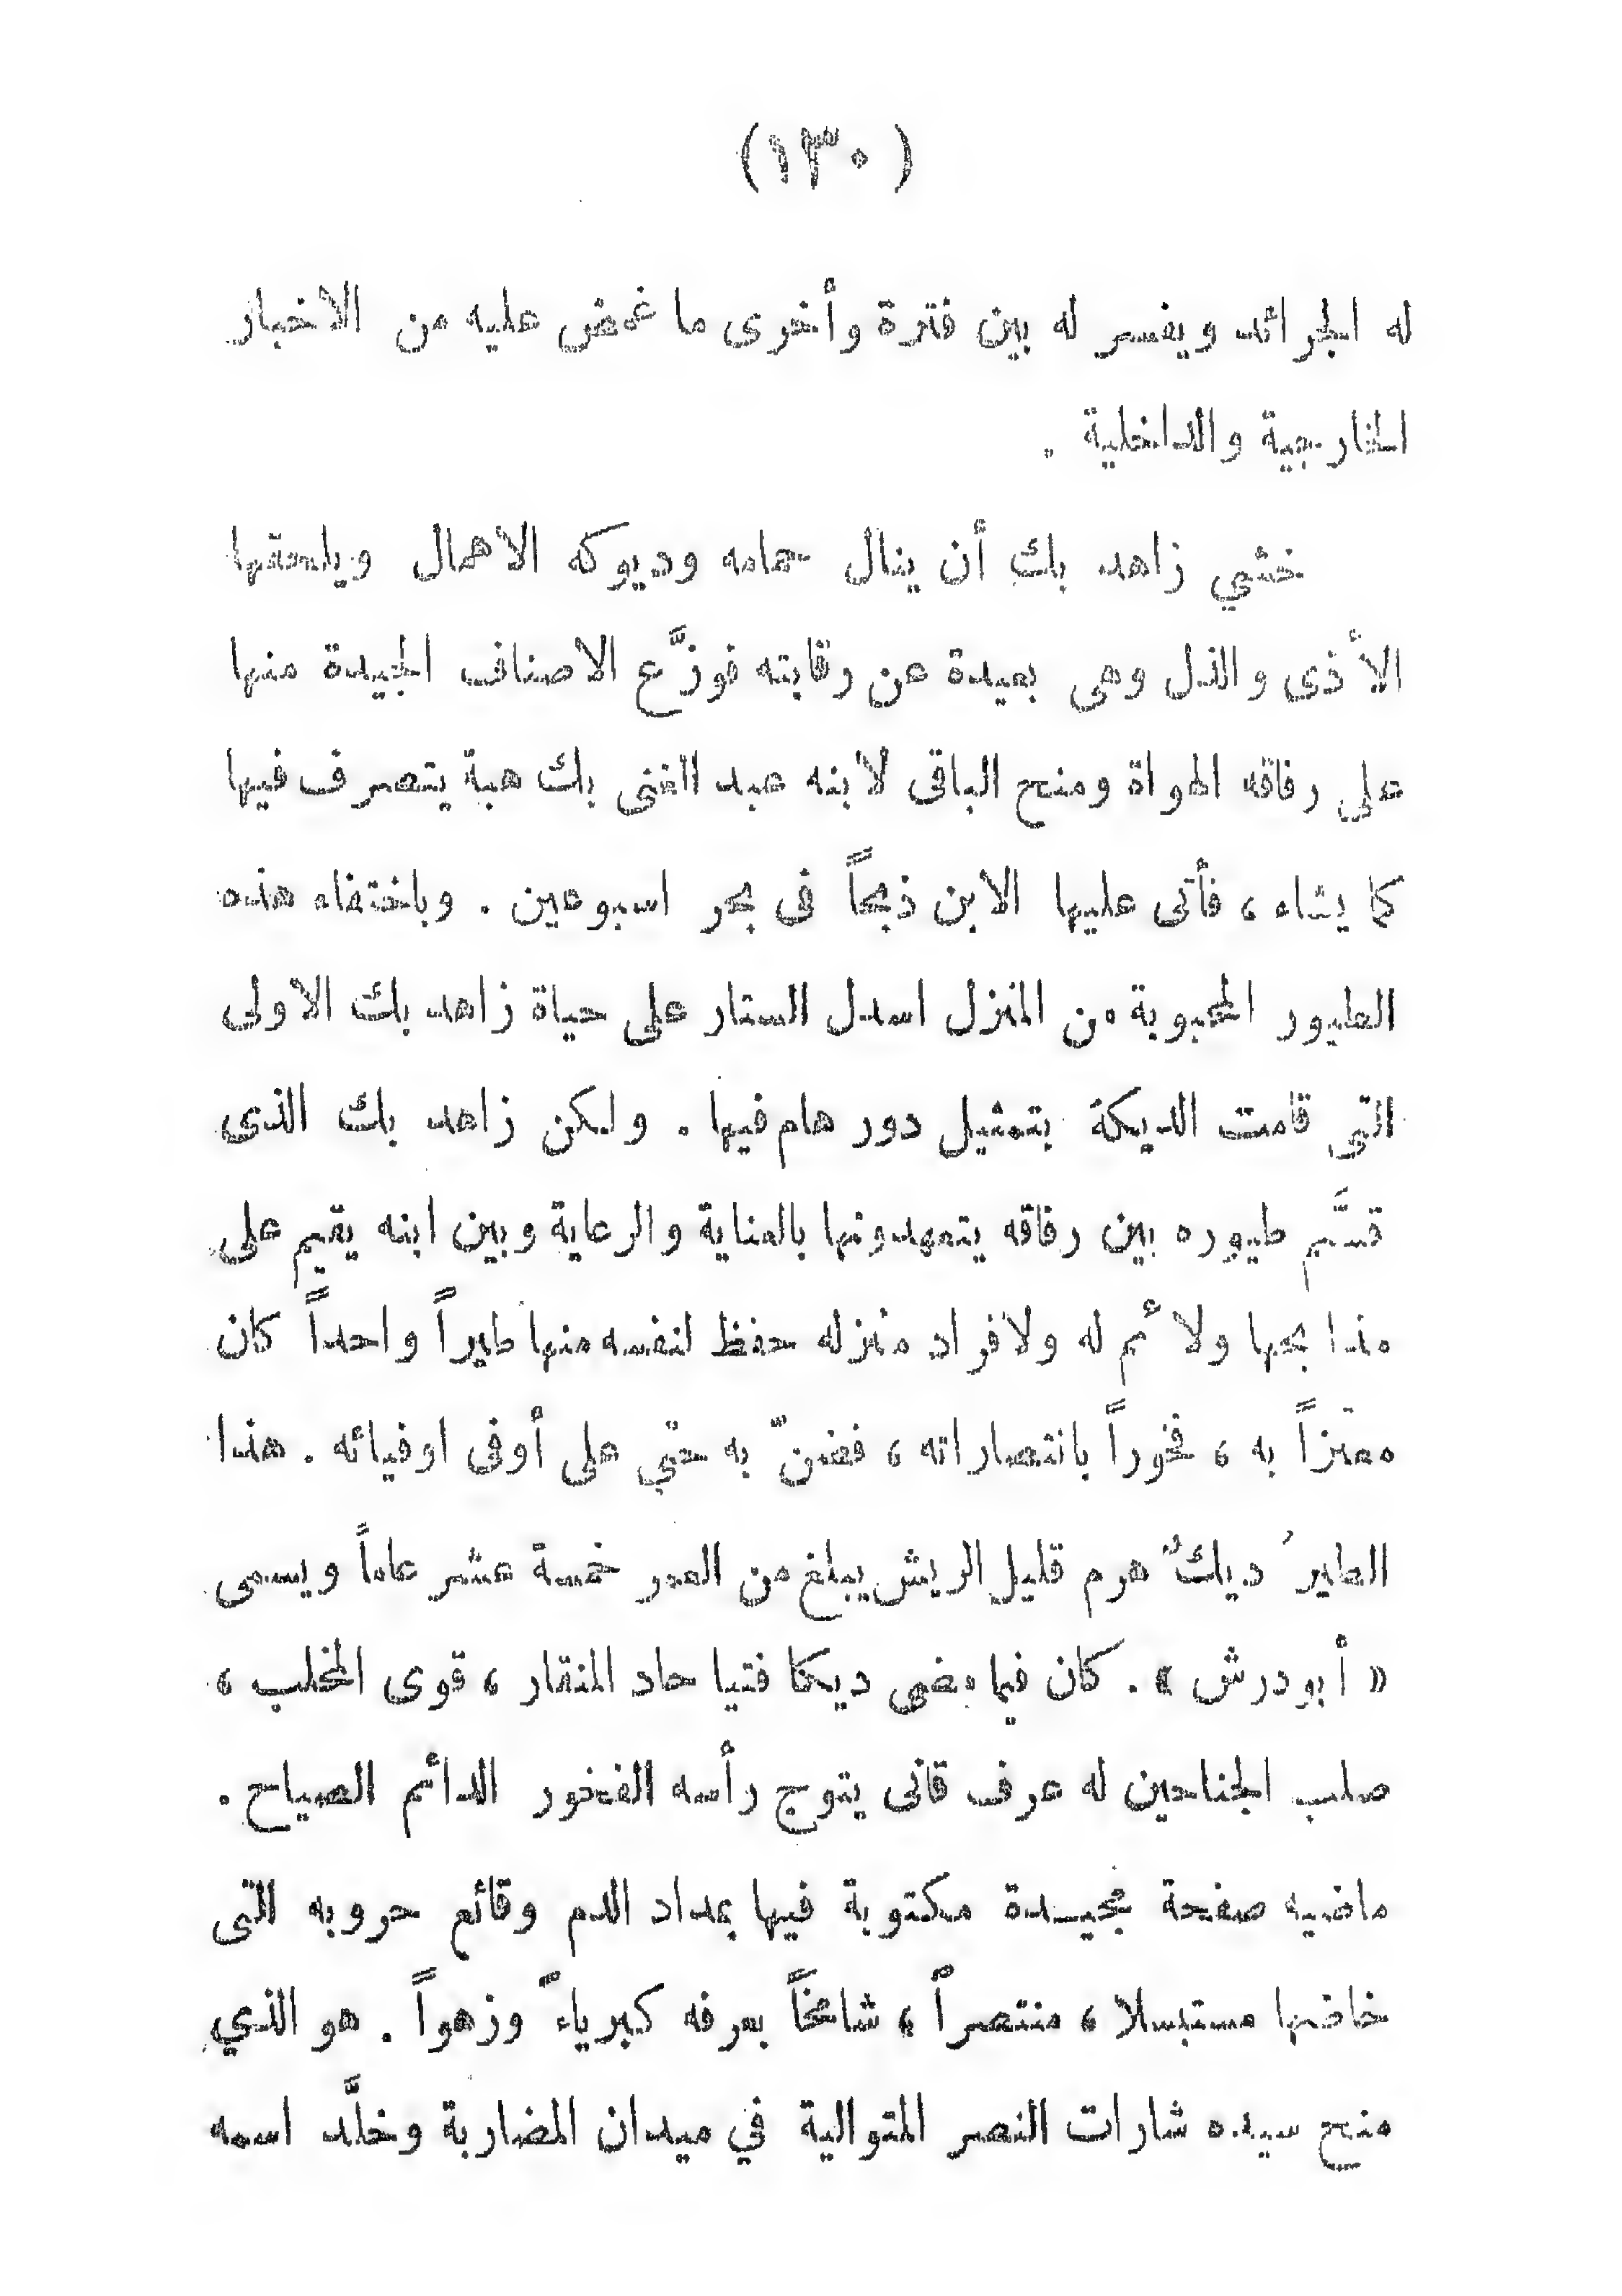 (١٣٠)
له الجرائد ويفسر له بين فترة وأخرى ما غمض عليه من الاخبار
الخارجية والداخلية .
خشي زاهد بك أن ينال حمامه وديوكه الاهمال ويلحقها
الأذى والذل وهى بعيدة عن رقابته فوزَّع الاصناف الجيدة منها
على رفاقه الهواة ومنح الباقى لابنه عبد الغنى بك هبة يتصرف فيها
كما يشاء ، فأتى عليها الابن ذبحاً فى بحر اسبوعين . وباختفاء هذه
الطيور المحبوبة من المنزل اسدل الستار على حياة زاهد بك الاولى
التى قامت الديكة بتمثيل دور هام فيها . ولكن زاهد بك الذى
قسَّم طيوره بين رفاقه يتعهدونها بالعناية والرعاية وبين ابنه يقيم على
مذابحها ولائم له ولافراد منزله حفظ لنفسه منها طيراً واحداً كان
معتزاً به ، فخوراً بانتصاراته ، فضنّ به حتي على أوفى اوفيائه . هذا
الطيرُ ديكٌ هرم قليل الريش يبلغ من العمر خمسة عشر عاماً ويسمى
« أبو درش » . كان فيما مضى ديكا فتيا حاد المنقار ، قوى المخلب ،
صلب الجناحين له عرف قانى يتوج رأسه الفخور الدائم الصياح .
ماضيه صفحة مجيدة مكتوبة فيها بمداد الدم وقائع حروبه التى
خاضها مستبسلا ، منتصراً ، شامخاً بعرفه كبرياءً وزهواً . هو الذي
منح سيده شارات النصر المتوالية في ميدان المضاربة وخلَّد اسمه